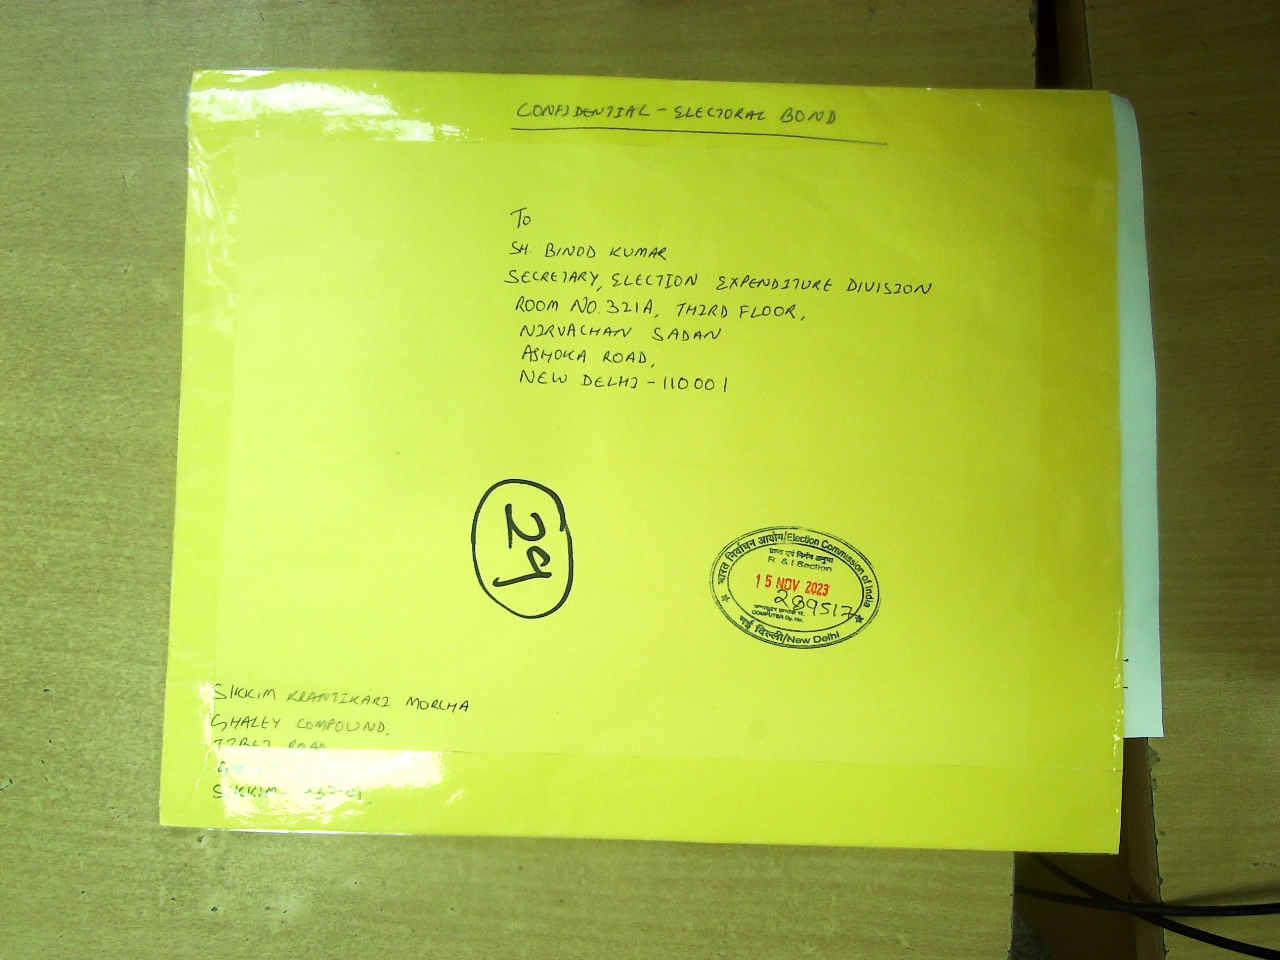 CONFIDENTIAL - ELECTORAL BOND
To
SH. BINOD KUMAR
SECRETARY, ELECTION EXPENDITURE DIVISION
ROOM NO. 321A, THIRD FLOOR,
NIRVACHAN SADAN
ASHOKA ROAD,
NEW DELHI - 110001
29
भारत निर्वाचन आयोग/Election Commission of India
R & I Section
15 NOV 2023
289517
COMPUTER Dy. No.
नई दिल्ली/New Delhi
SIKKIM KRANTIKARI MORCHA
GHALEY COMPOUND,
ROAD
SIKKIM